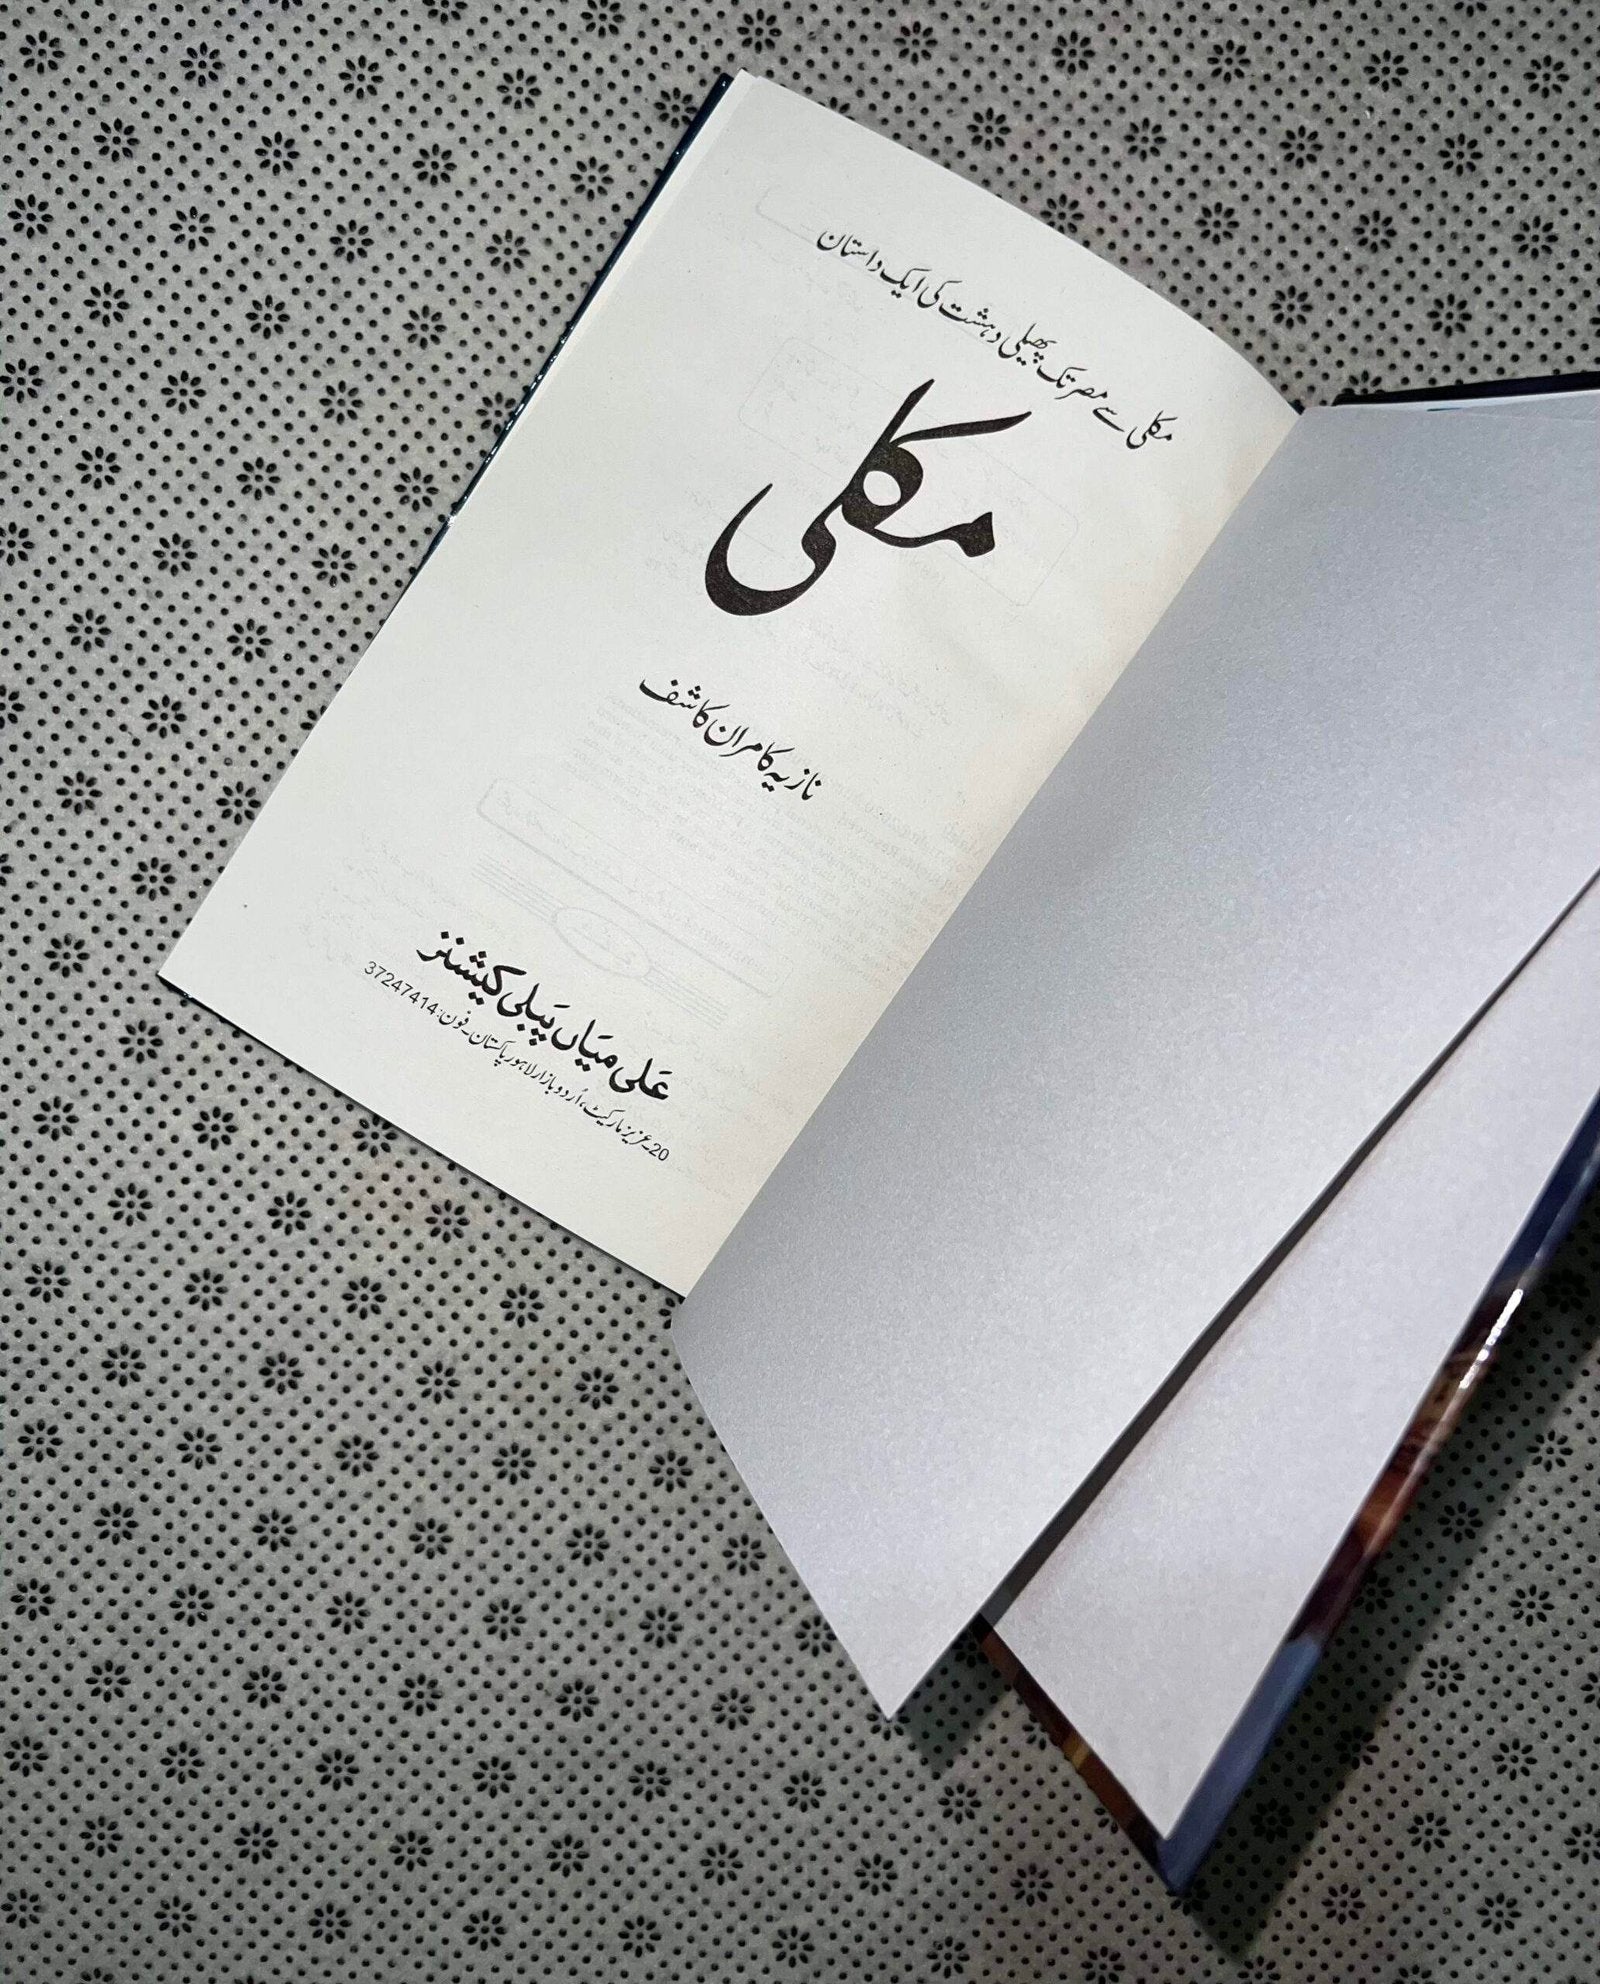 مکلی سے مصر تک پھیلی دہشت کی ایک داستان
مکلی
نازیہ کامران کاشف
عَلی مِیَاں پَبلی کیشنز
20۔عزیز مارکیٹ، اُردو بازار لاہور پاکستان۔فون: 37247414